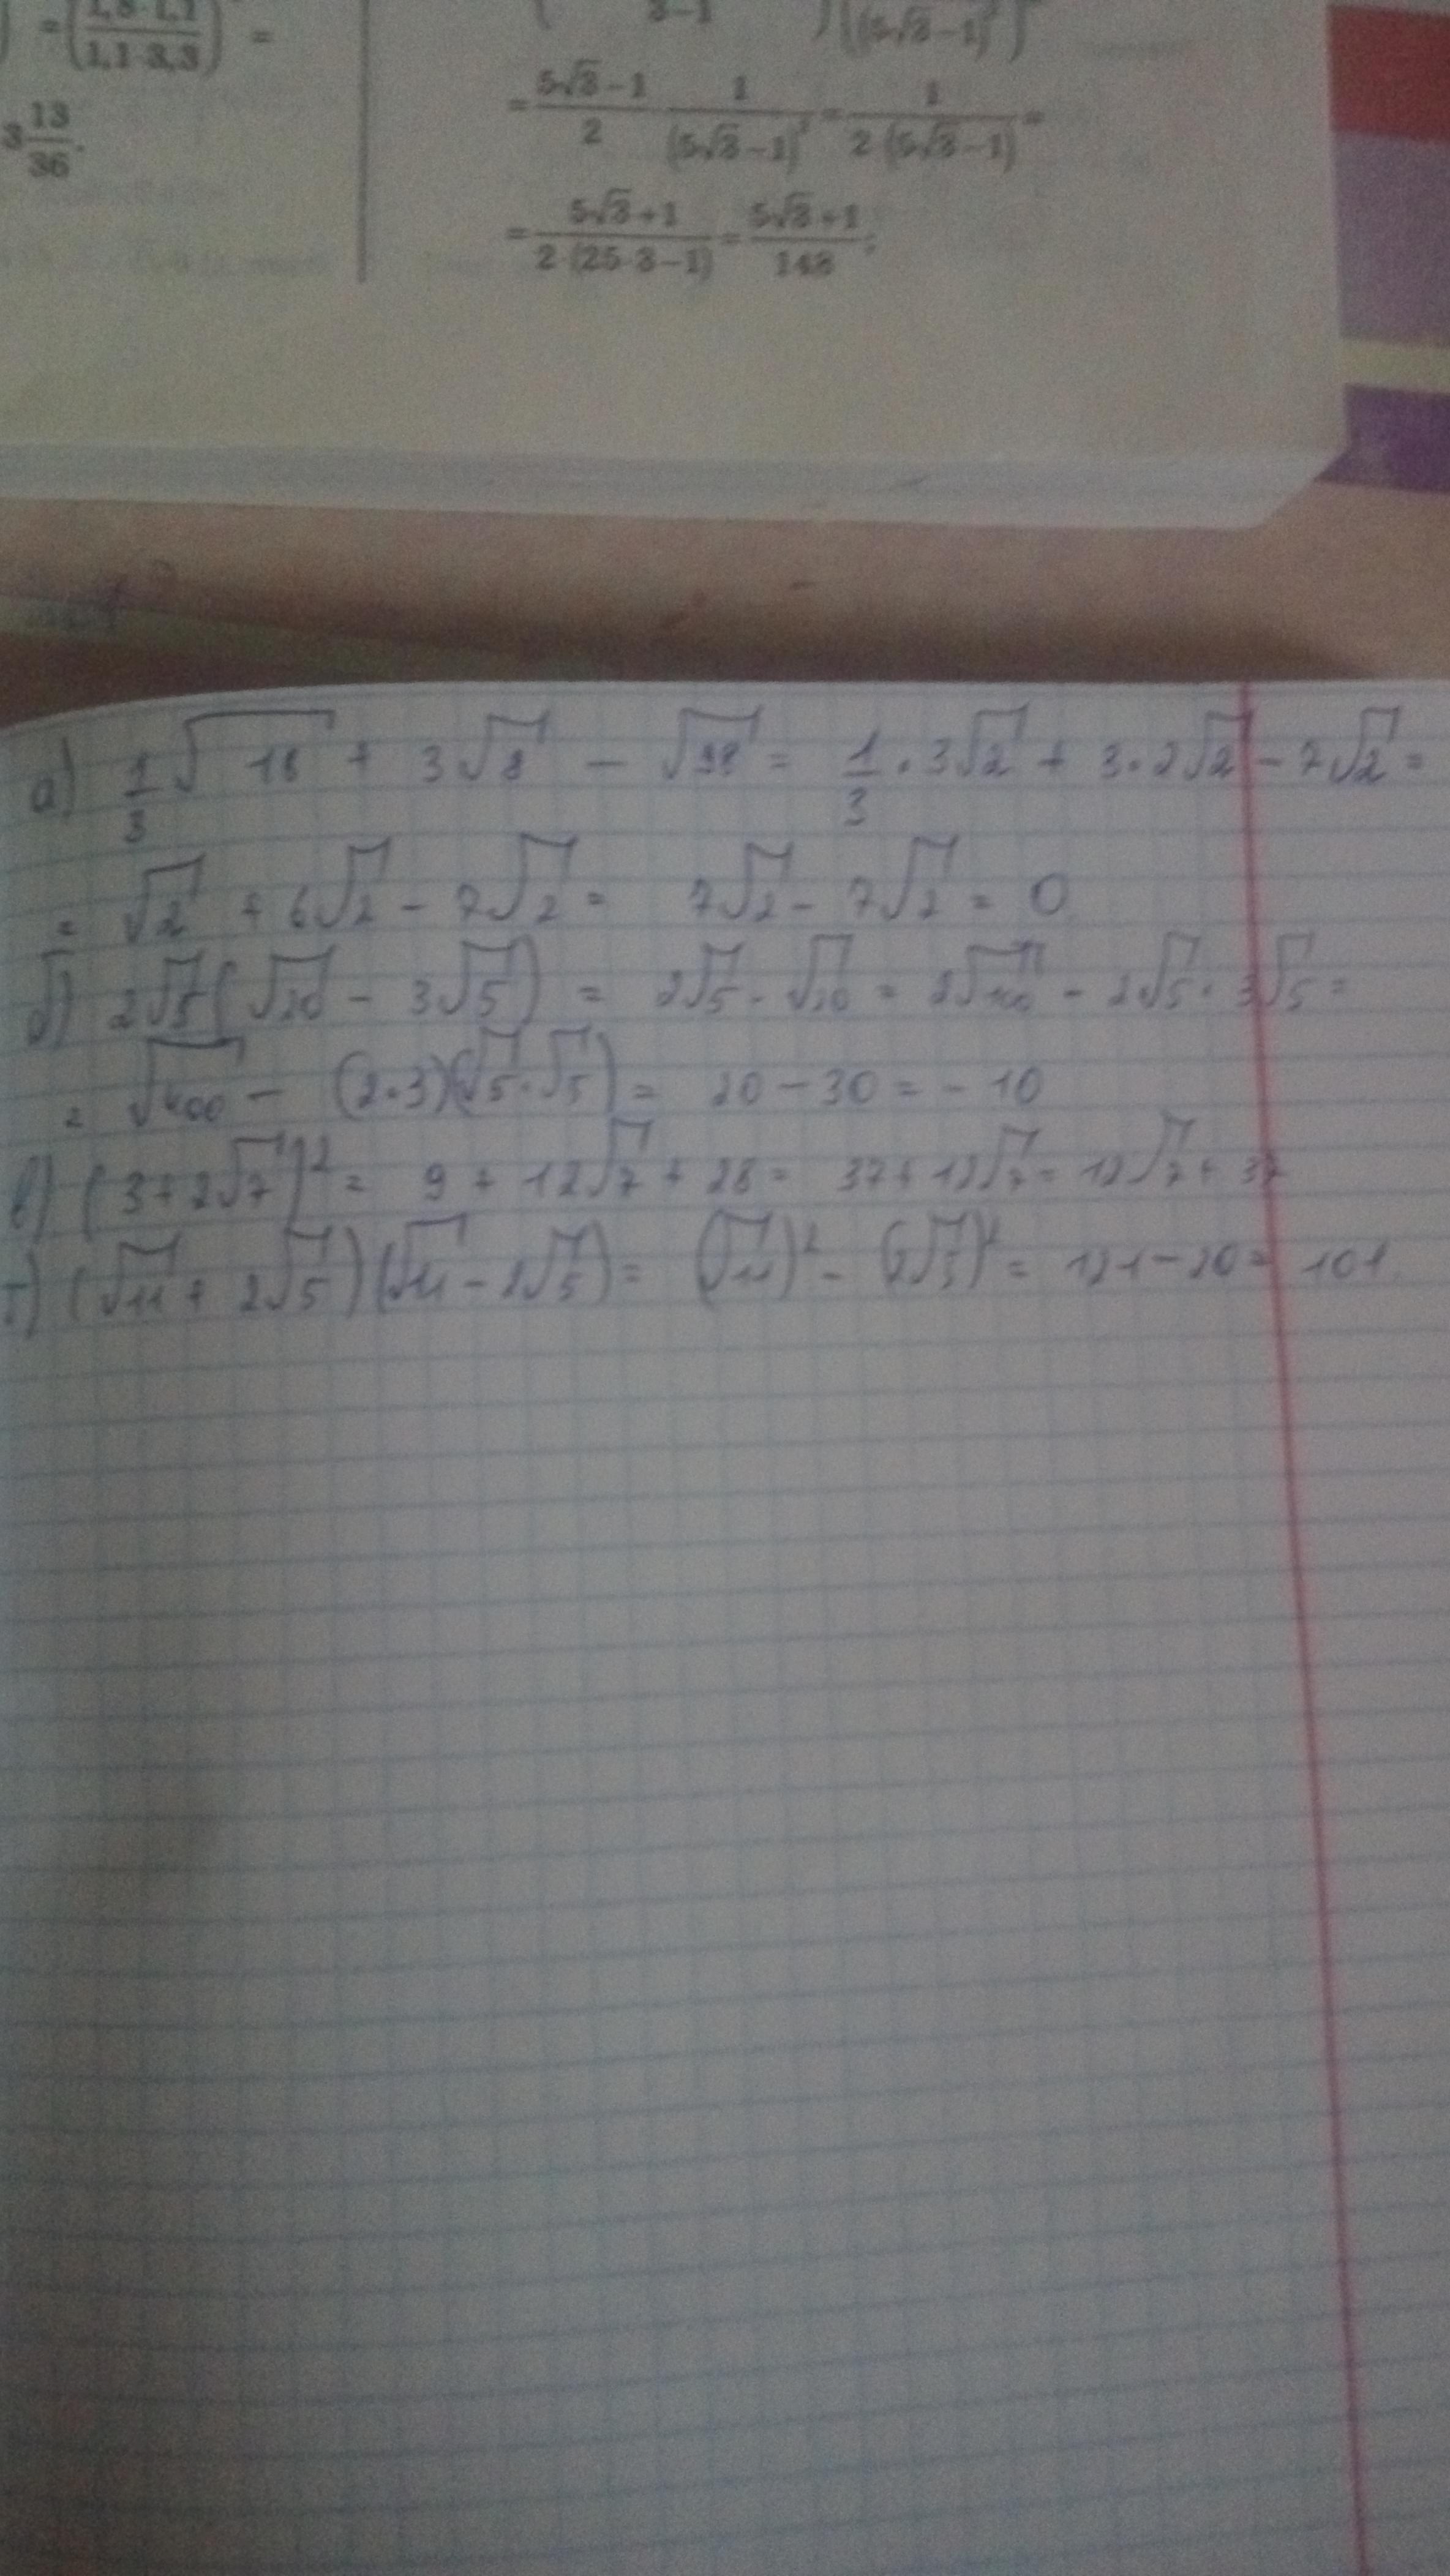 = (1,8·1,1 / 1,1·3,3) =
3 13/36.
3−1 ) ((5√3−1)²)
= (5√3−1)/2 · 1/(5√3−1)² = 1/(2·(5√3−1)) =
= (5√3+1)/(2·(25·3−1)) = (5√3+1)/148;
а) 1/3 √18 + 3√8 − √98 = 1/3 · 3√2 + 3·2√2 − 7√2 =
= √2 + 6√2 − 7√2 = 7√2 − 7√2 = 0
б) 2√5(√20 − 3√5) = 2√5 · √20 = 2√100 − 2√5 · 3√5 =
= √400 − (2·3)(√5·√5) = 20 − 30 = −10
в) (3+2√7)² = 9 + 12√7 + 28 = 37+12√7 = 12√7 + 37
г) (√11 + 2√5)(√11 − 2√5) = (√11)² − (2√5)² = 121−20 = 101